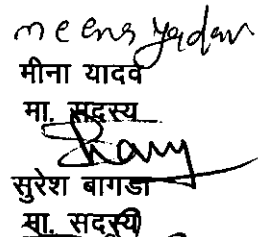 meena yadav
मीना यादव
मा. सदस्य
सुरेश बागडा
मा. सदस्य